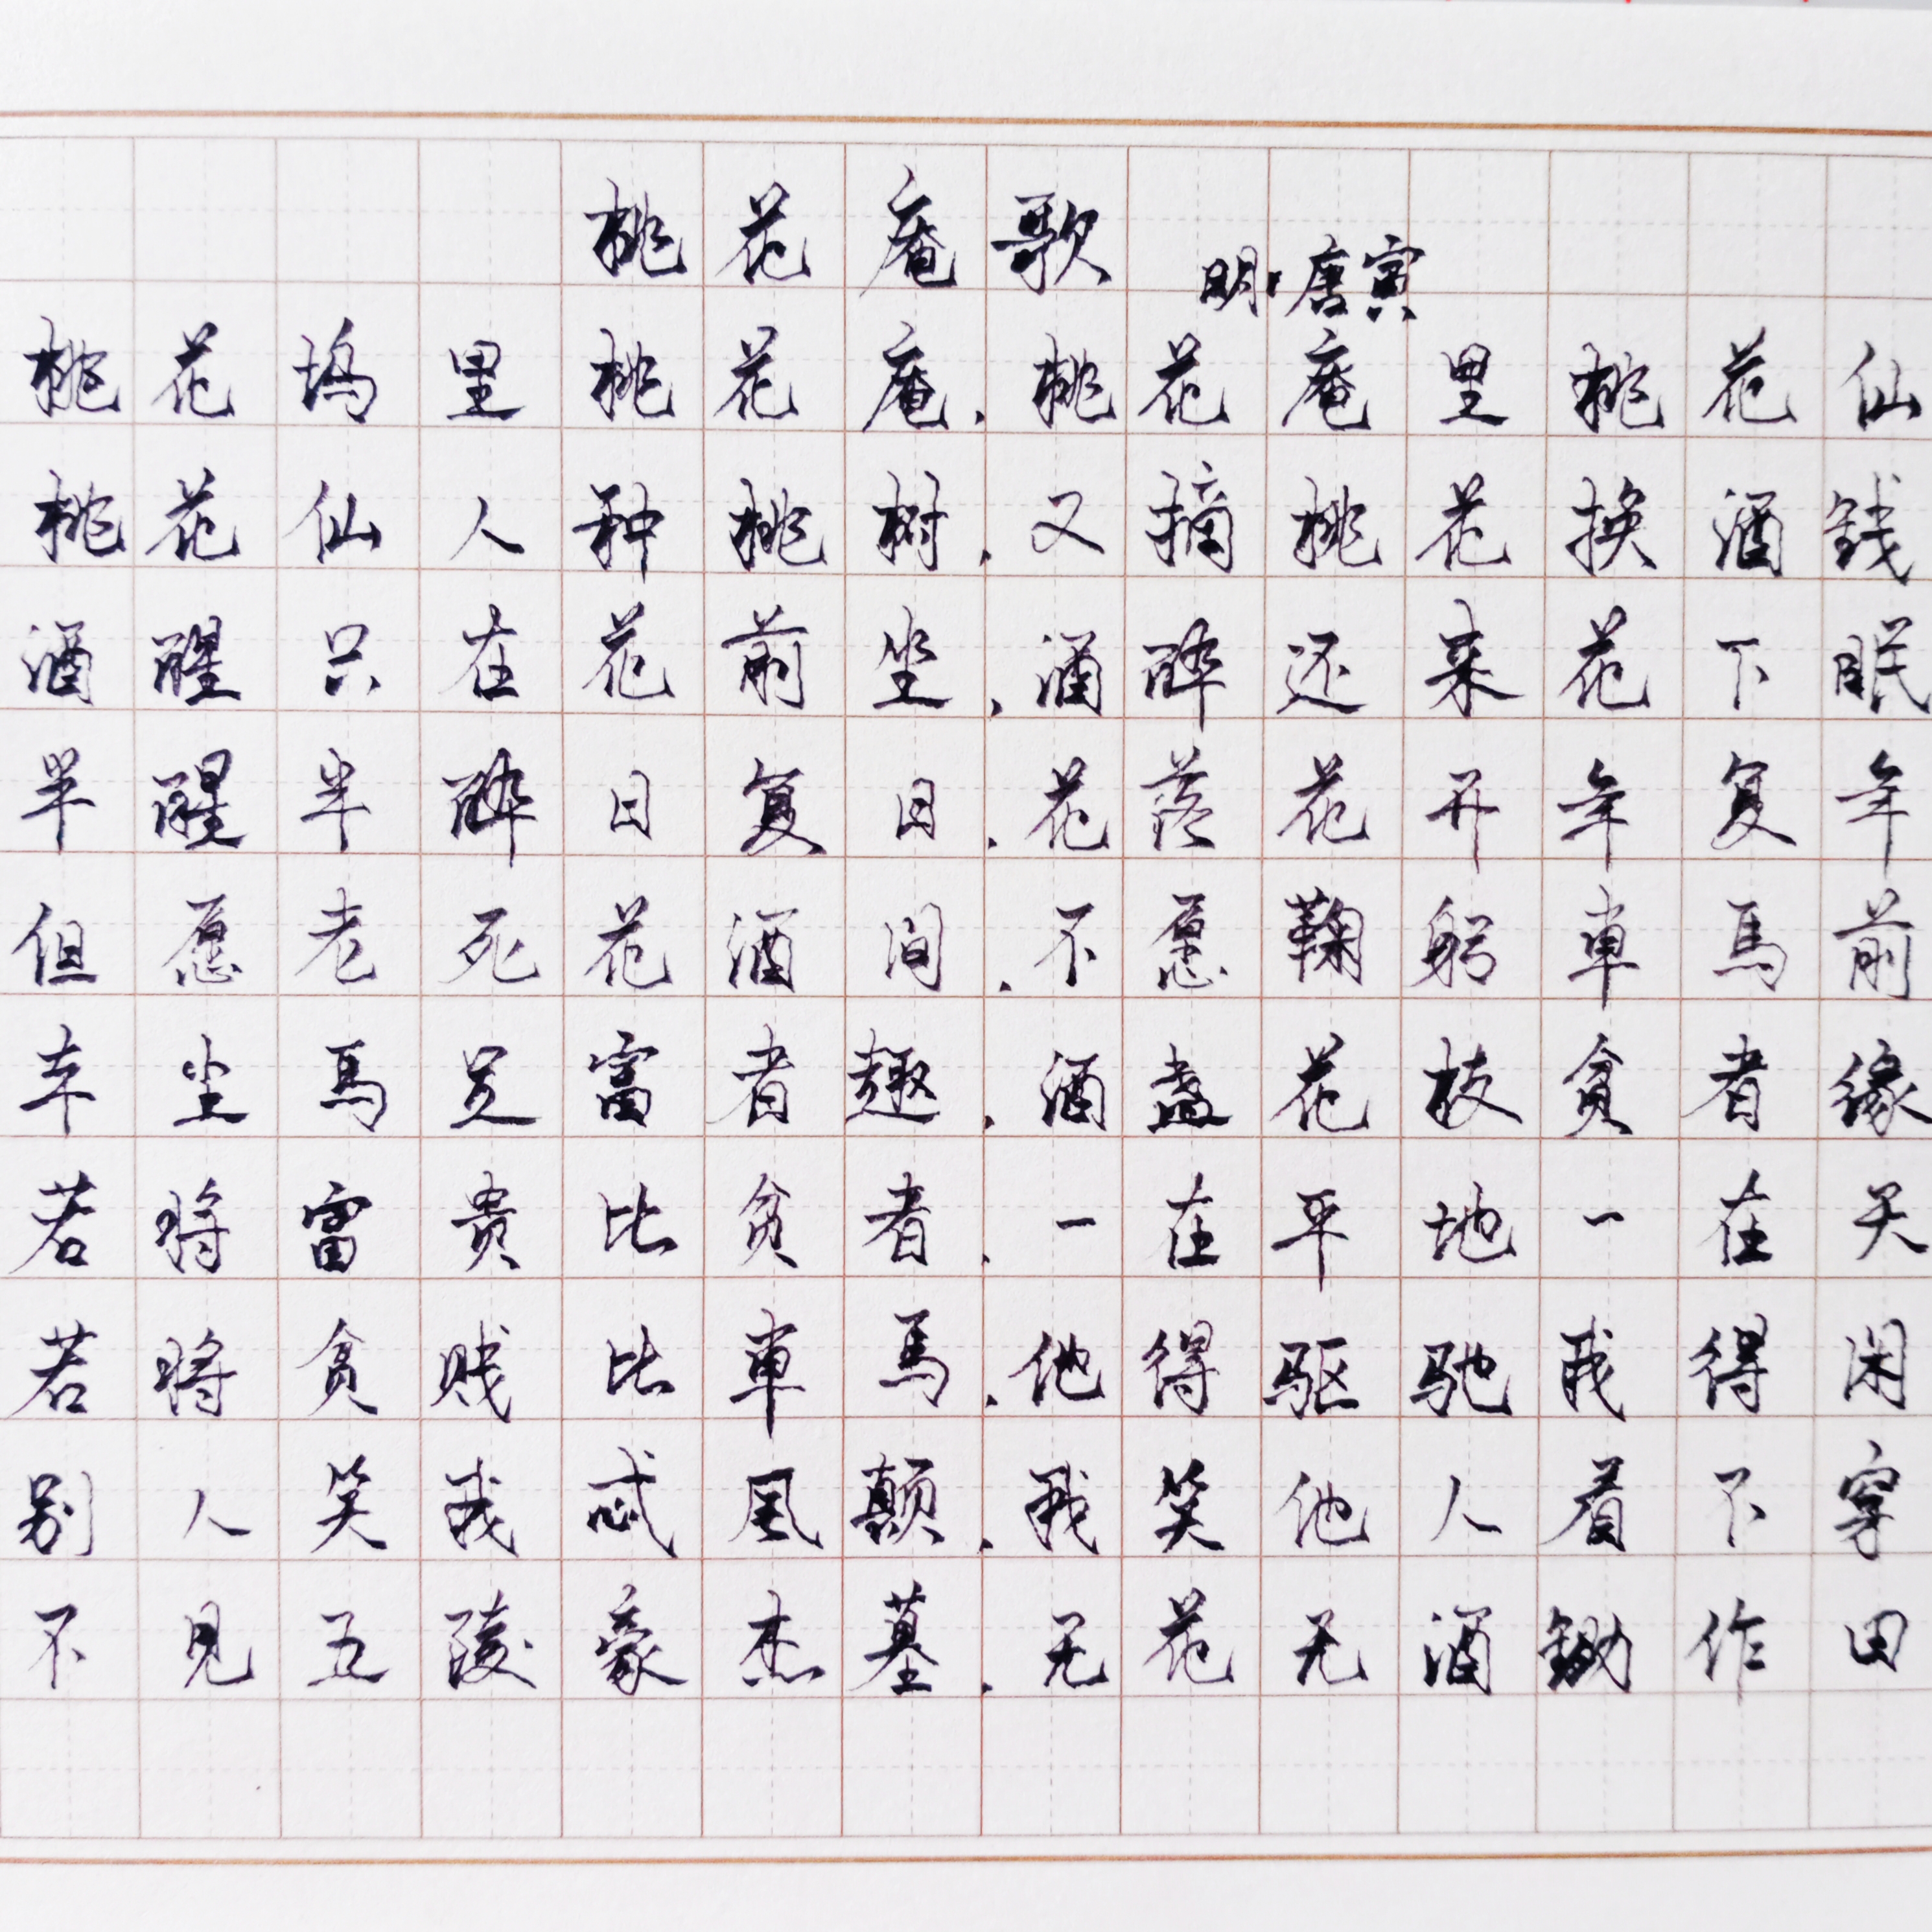 桃花庵歌
明·唐寅
桃花坞里桃花庵,桃花庵里桃花仙
桃花仙人种桃树,又摘桃花换酒钱
酒醒只在花前坐,酒醉还来花下眠
半醒半醉日复日,花落花开年复年
但愿老死花酒间,不愿鞠躬車馬前
车尘馬足富者趣,酒盏花枝贫者缘
若将富贵比贫者,一在平地一在天
若将贫贱比車馬,他得驱驰我得闲
别人笑我忒风颠,我笑他人看不穿
不见五陵豪杰墓,无花无酒锄作田